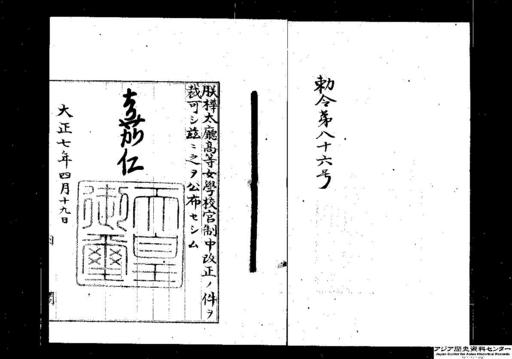 勅令第八十六号
朕樺太廳高等女學校官制中改正ノ件ヲ
裁可シ茲ニ之ヲ公布セシム
嘉仁
天皇御璽
大正七年四月十九日
内閣
アジア歴史資料センター
Japan Center for Asian Historical Records